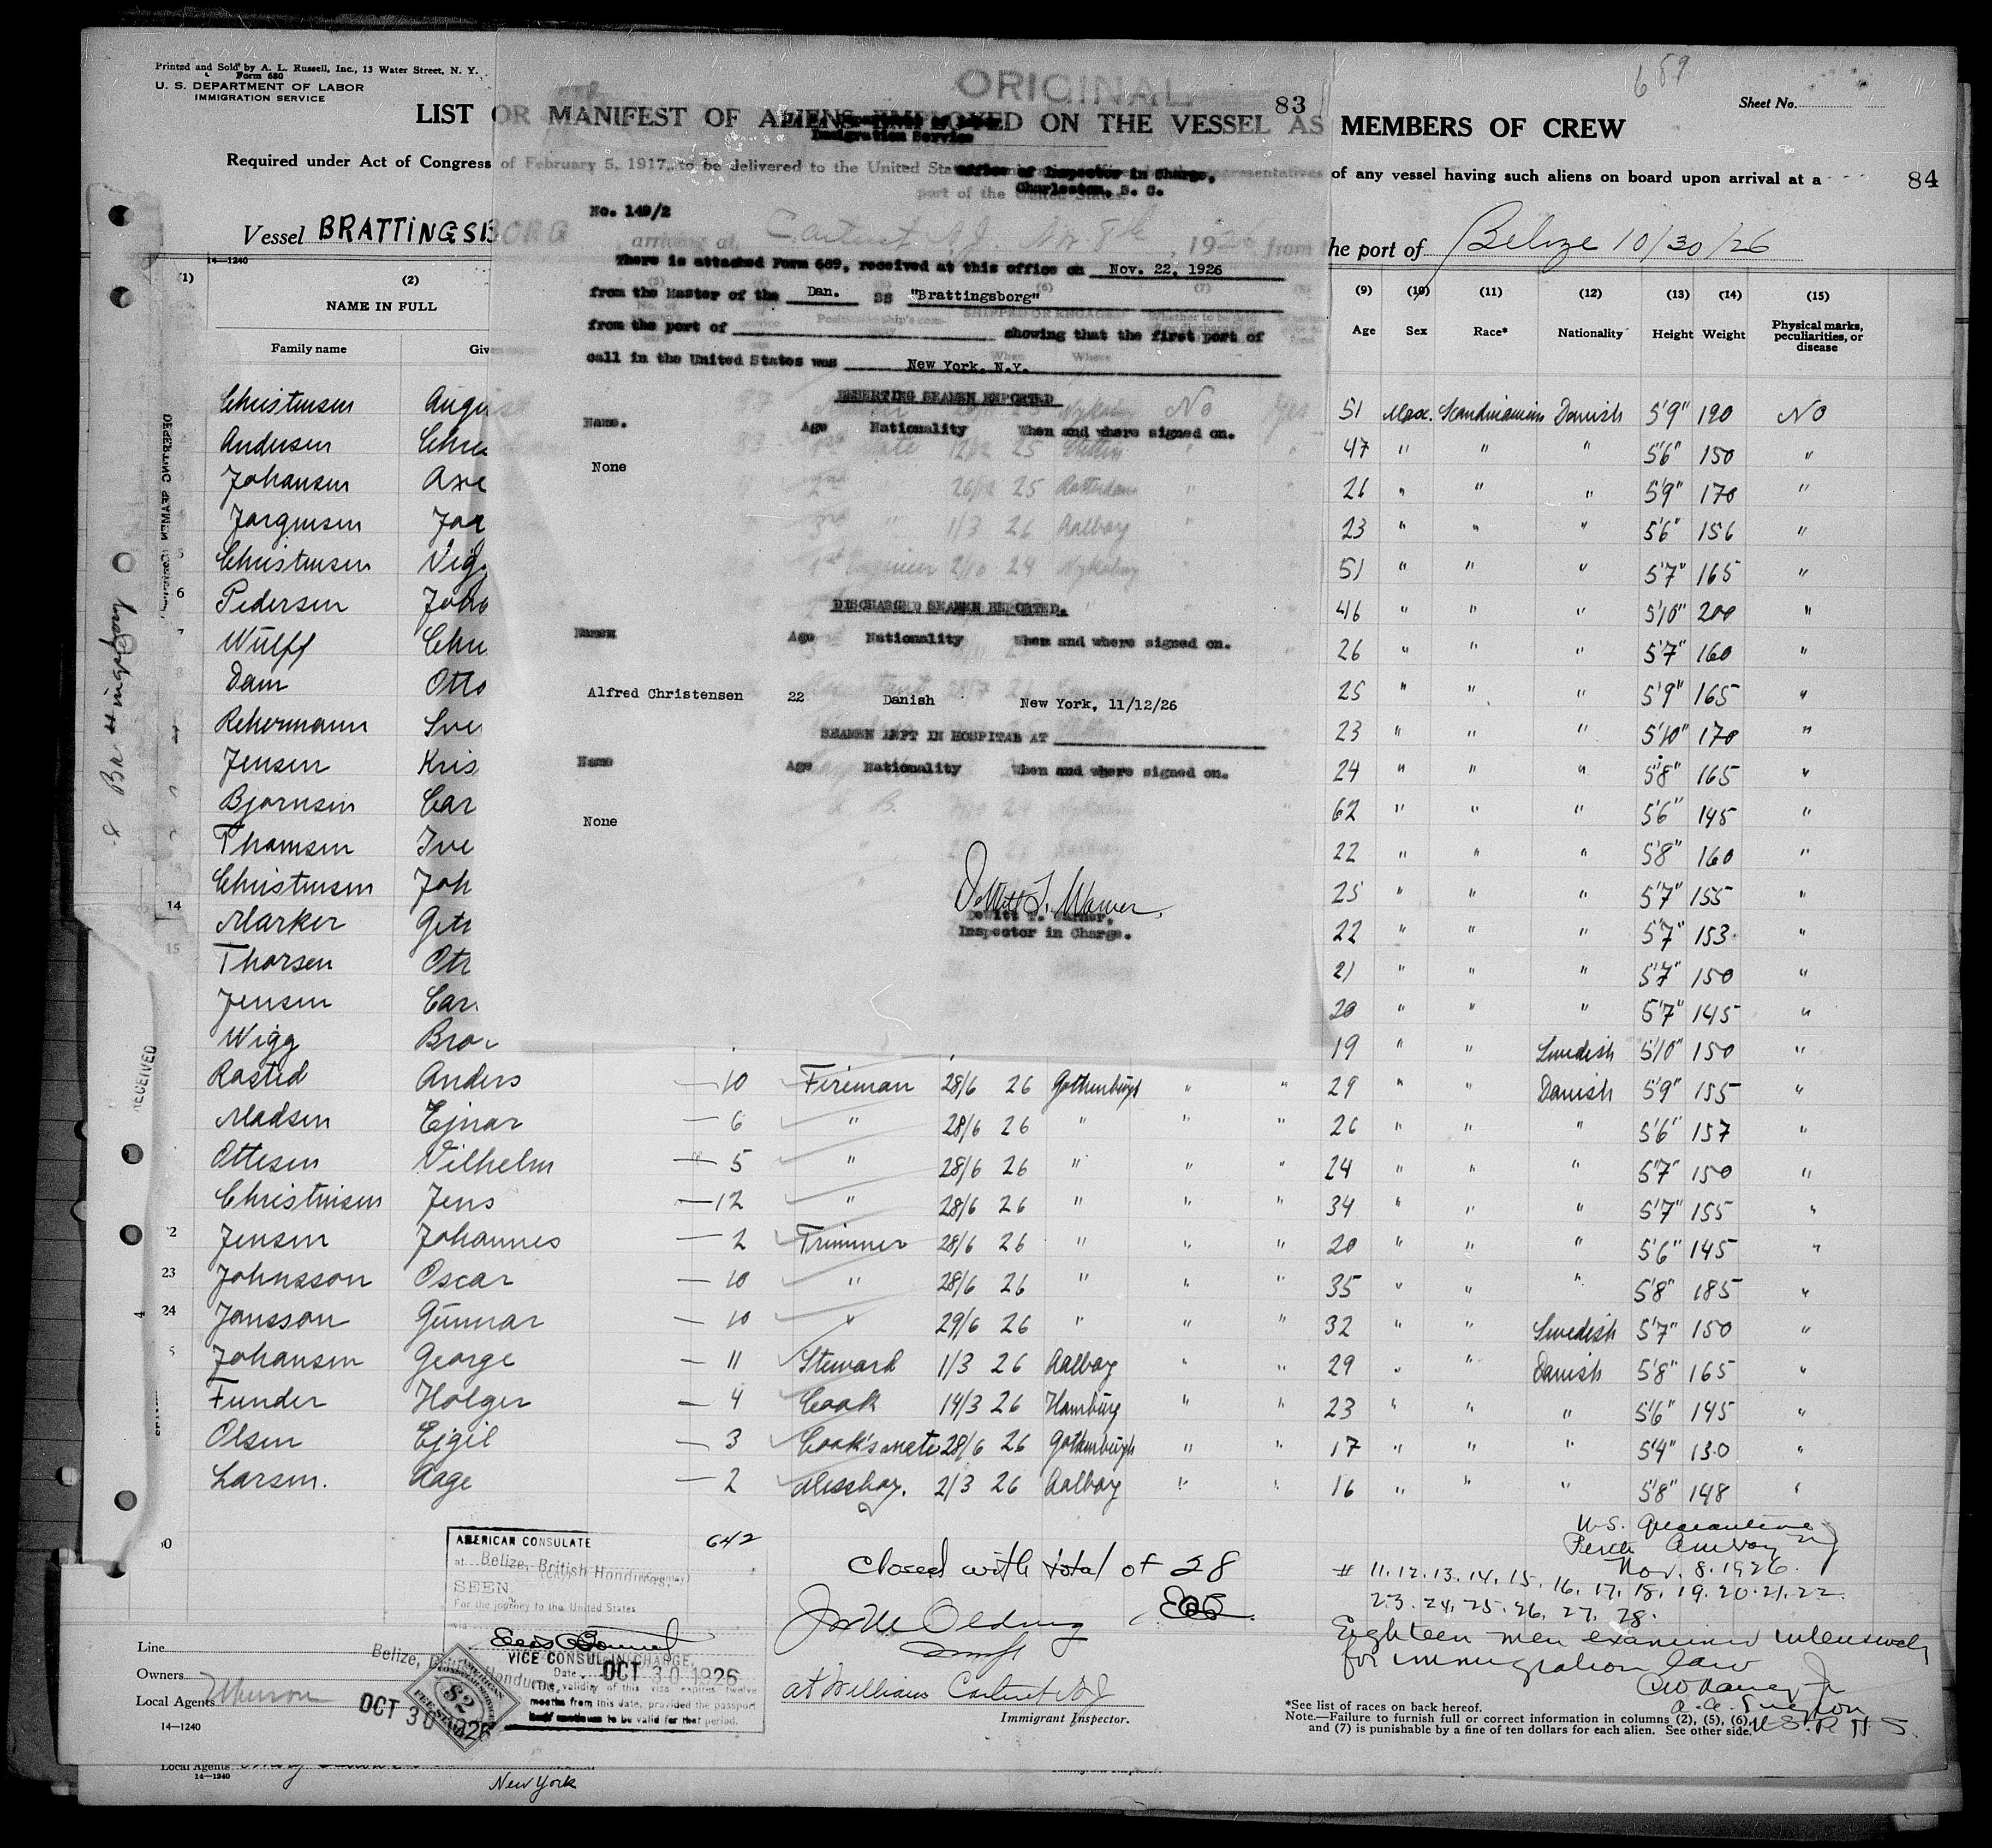 Printed and Sold by A. L. Russell, Inc., 13 Water Street, N. Y.
Form 680
U. S. DEPARTMENT OF LABOR
IMMIGRATION SERVICE
ORIGINAL
83
689
Sheet No.
LIST OR MANIFEST OF ALIENS EMPLOYED ON THE VESSEL AS MEMBERS OF CREW
Immigration Service
Required under Act of Congress of February 5, 1917, to be delivered to the United Sta
representatives of any vessel having such aliens on board upon arrival at a
84
office of Inspector in Charge,
port of the United States
Charleston, S. C.
No. 149/2
Vessel BRATTINGSBORG
arriving at Carteret N.J. Nov. 8th, 1926 from the port of Belize 10/30/26
14-1240
There is attached Form 689, received at this office on Nov. 22, 1926
from the Master of the Dan. SS "Brattingsborg"
from the port of showing that the first port of
call in the United States was New York, N.Y.
(1) (2) (9) (10) (11) (12) (13) (14) (15)
NAME IN FULL Age Sex Race* Nationality Height Weight Physical marks, peculiarities, or disease
Family name Giv
DESERTING SEAMEN REPORTED
Name. Age Nationality When and where signed on.
None
DISCHARGED SEAMEN REPORTED.
Names Age Nationality When and where signed on.
Alfred Christensen 22 Danish New York, 11/12/26
SEAMEN LEFT IN HOSPITAL AT
Name Age Nationality When and where signed on.
None
DeWitt T. Warner,
DeWitt T. Warner,
Inspector in Charge.
Christensen August 51 Masc. Scandinavian Danish 5'9" 190 No
Andersen Chri 47 " " " 5'6" 150 "
Johansen Axe 26 " " " 5'9" 170 "
Jorgensen Jor 23 " " " 5'6" 156 "
5 Christensen Vig 51 " " " 5'7" 165 "
6 Pedersen Joh 46 " " " 5'10" 200 "
7 Wulff Chri 26 " " " 5'7" 160 "
8 Dam Otto 25 " " " 5'9" 165 "
Rehermann Sve 23 " " " 5'10" 170 "
Jensen Kris 24 " " " 5'8" 165 "
Bjornsen Car 62 " " " 5'6" 145 "
Thomsen Ive 22 " " " 5'8" 160 "
Christensen Joh 25 " " " 5'7" 155 "
14 Marker 22 " " " 5'7" 153 "
15 Thorsen Ott 21 " " " 5'7" 150 "
Jensen Car 20 " " " 5'7" 145 "
Wigg Bro 19 " " Swedish 5'10" 150 "
Rosted Anders — 10 Fireman 28/6 26 Gothenburgh " " 29 " " Danish 5'9" 155 "
Madsen Ejnar — 6 " 28/6 26 " " " 26 " " " 5'6" 157 "
Ottesen Vilhelm — 5 " 28/6 26 " " " 24 " " " 5'7" 150 "
Christensen Jens — 12 " 28/6 26 " " " 34 " " " 5'7" 155 "
2 Jensen Johannes — 2 Trimmer 28/6 26 " " " 20 " " " 5'6" 145 "
23 Johnsson Oscar — 10 " 28/6 26 " " " 35 " " " 5'8" 185 "
24 Jonsson Gunnar — 10 " 29/6 26 " " " 32 " " Swedish 5'7" 150 "
5 Johansen George — 11 Steward 1/3 26 Aalborg " " 29 " " Danish 5'8" 165 "
Funder Holger — 4 Cook 14/3 26 Hamburg " " 23 " " " 5'6" 145 "
Olsen Ejgil — 3 Cook's mate 28/6 26 Gothenburgh " " 17 " " " 5'4" 130 "
Larsen. Aage — 2 Messboy. 2/3 26 Aalborg " " 16 " " " 5'8" 148 "
8 Brattingsborg
RECEIVED
AMERICAN CONSULATE
at Belize, British Honduras.
SEEN
For the journey to the United States
VICE CONSUL IN CHARGE,
Date OCT 30 1926
The validity of this visa expires twelve
months from this date, provided the passport
continues to be valid for that period.
Belize, British Honduras
AMERICAN CONSULAR SERVICE
$2
FEE STAMP
OCT 30 1926
642
Closed with total of 28
at Williams Carteret NJ
Immigrant Inspector.
U.S. Quarantine
Perth Amboy NJ
Nov. 8. 1926.
# 11. 12. 13. 14. 15. 16. 17. 18. 19. 20. 21. 22.
23. 24. 25. 26. 27. 28.
Eighteen men examined intensively
for immigration law
A. A. Surgeon
U.S.P.H.S.
Line
Owners
Local Agents
14-1240
*See list of races on back hereof.
Note.—Failure to furnish full or correct information in columns (2), (5), (6),
and (7) is punishable by a fine of ten dollars for each alien. See other side.
Local Agents
14-1240
New York